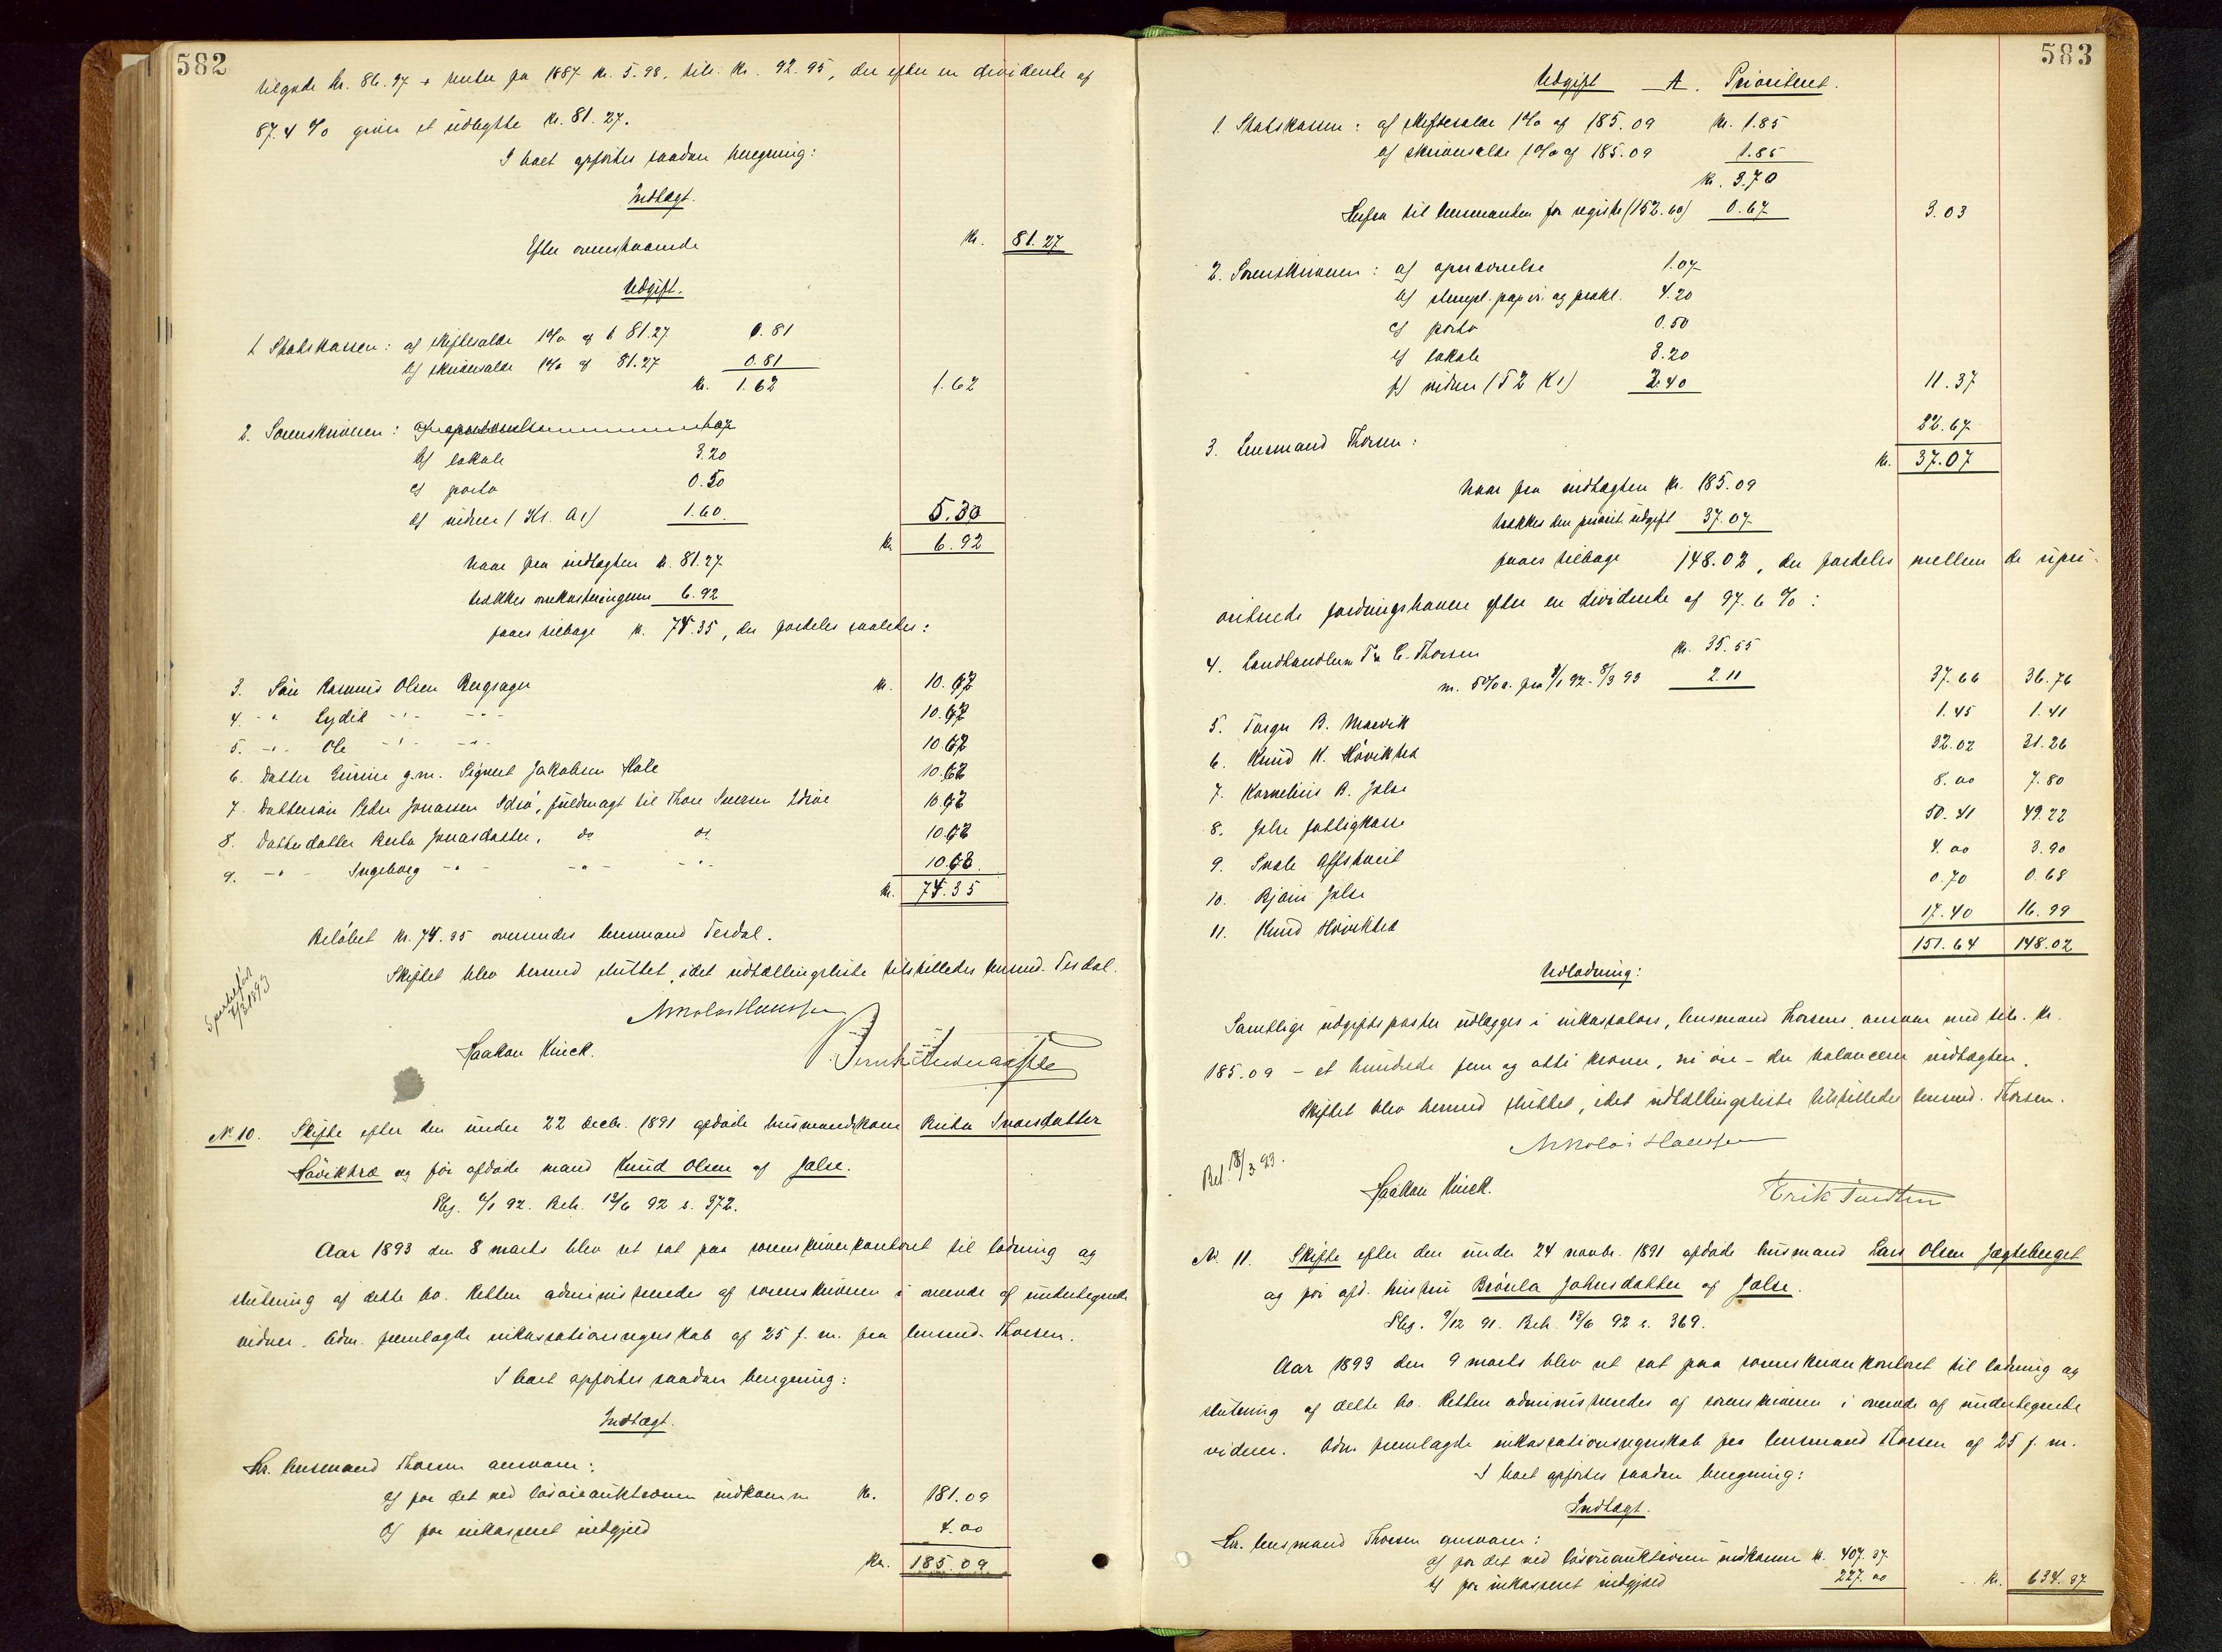 582
tilgode kr. 86.97 + renter fra 1887 kr. 5.98, tils. kr. 92.95, der efter en dividende af
87.4 % giver et udbytte kr. 81.27.
I boet opførtes saadan beregning:
Indtægt.
Efter ovenstaaende kr. 81.27
Udgift.
1 Statskassen: a) skiftesalær 1% af 81.27 0.81
b) skriversalær 1% af 81.27 0.81
kr. 1.62 1.62
2. Sorenskriveren:
b) lokale 3.20
c) porto 0.50
d) vidner ( Kl. A1) 1.60 5.30
kr 6.92
naar fra indtægten kr. 81.27
trækkes omkostningerne 6.92
faaes tilbage kr. 74.35, der fordeles saaledes:
3. Søn Rasmus Olsen Bergsager kr. 10.62
4. -"- Lydik -"- -"- 10.62
5. -"- Ole -"- -"- 10.62
6. Datter Gurine g.m. Sigvert Jakobsen Hole 10.62
7. Dattersøn Peder Jonassen Idsø, fuldmagt til Thore Iversen Idsøe 10.62
8. Datterdatter Berta Jonasdatter, do do 10.62
9. -"- Ingeborg -"- -"- -"- 10.63
kr. 74.35
Beløbet kr. 74.35 oversendes lensmand Tesdal.
Skiftet blev hermed sluttet, idet udtællingsliste tilstilledes lensmd. Tesdal.
Sportelført
7/3 1893
Nikolai Hanssen
Haakon Kinck.
No 10. Skifte efter den under 22 decbr. 1891 afdøde husmandskone Berta Ivarsdatter
Høviktræ og før afdøde mand Knud Olsen af Jelse.
Reg. 6/1 92. Beh. 13/6 92 s. 372.
Aar 1893 den 8 marts blev ret sat paa sorenskriverkontoret til lodning og
slutning af dette bo. Retten administreredes af sorenskriveren i overvær af undertegnede
vidner. Adm. fremlagde inkassationsregnskab af 25 f. m. fra lensmd. Thorsen.
I boet opførtes saadan beregning:
Indtægt.
Hr. lensmand Thorsen ansvarer:
a) for det ved løsøreauktionen indkomne kr. 181.09
b) for inkasseret indgjæld 4.00
kr. 185.09
583
Udgift A. Prioriteret.
1. Statskassen: a) skiftesalær 1% af 185.09 kr. 1.85
b) skriversalær 1% af 185.09 1.85
kr. 3.70
Herfra til lensmanden for registr. (152.60) 0.67 3.03
2. Sorenskriveren: a) opnævnelse 1.07
b) stempl. papir og prokl. 4.20
c) porto 0.50
e) lokale 3.20
f) vidner (S 2 K1) 2.40 11.37
3. Lensmand Thorsen: 22.67
kr. 37.07
naar fra indtægten kr. 185.09
trækkes den priorit. udgift 37.07
faaes tilbage 148.02, der fordeles mellem de upri-
oriterede fordringshavere efter en dividende af 97.6 %:
4. Landhandler Tr. C. Thorsen kr. 35.55
m. 5% r. fra 9/1 92 - 8/3 93 2.11 37.66 36.76
5. Torger B. Marvik 1.45 1.41
6. Knud K. Høviktræ 32.02 31.26
7. Kornelius B. Jelse 8.00 7.80
8. Jelse fattigkasse 50.41 49.22
9. Svale Østshveit 4.00 3.90
10. Bjørn Jelse 0.70 0.68
11. Knud Høviktræ 17.40 16.99
151.64 148.02
Udlodning:
Samtlige udgiftsposter udlægges i inkassators, lensmand Thorsens, ansvar med tils. kr.
185.09 - et hundrede fem og otti kroner, ni øre - der balancerer indtægten.
Skiftet blev hermed sluttet, idet udtællingsliste tilstilledes lensmd. Thorsen.
Bet. 18/3 93.
Nikolai Hanssen
Haakon Kinck.
Erik Tuedten
No. 11. Skifte efter den under 24 novbr. 1891 afdøde husmand Lars Olsen Jægteberget
og før afd. hustru Brønla Johnsdatter af Jelse.
Reg. 9/12 91. Beh. 13/6 92 s. 369.
Aar 1893 den 9 marts blev ret sat paa sorenskriverkontoret til lodning og
slutning af dette bo. Retten administreredes af sorenskriveren i overvær af undertegnede
vidner. Adm. fremlagde inkassationsregnskab fra lensmand Thorsen af 25 f. m.
I boet opførtes saadan beregning:
Indtægt.
Hr. lensmand Thorsen ansvarer:
a) for det ved løsøreauktionen indkomne kr. 407.37
b) for inkasseret indgjæld 227.00 kr. 634.37